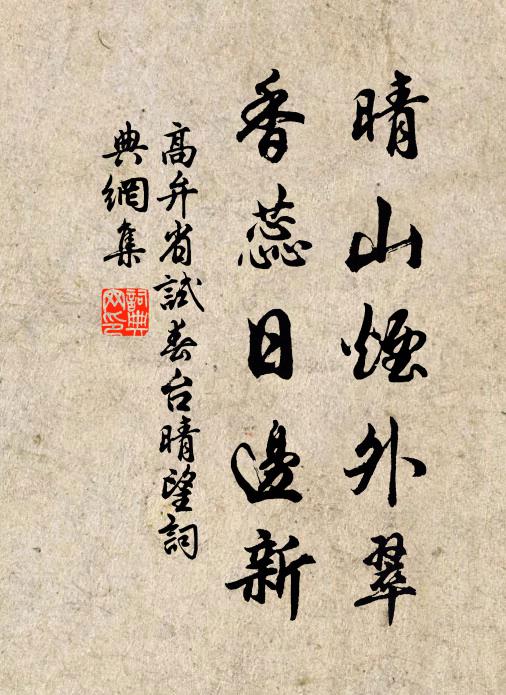 晴山煙外翠
香蕊日邊新
高弁省試春台晴望詞
典網集
詞典
網印